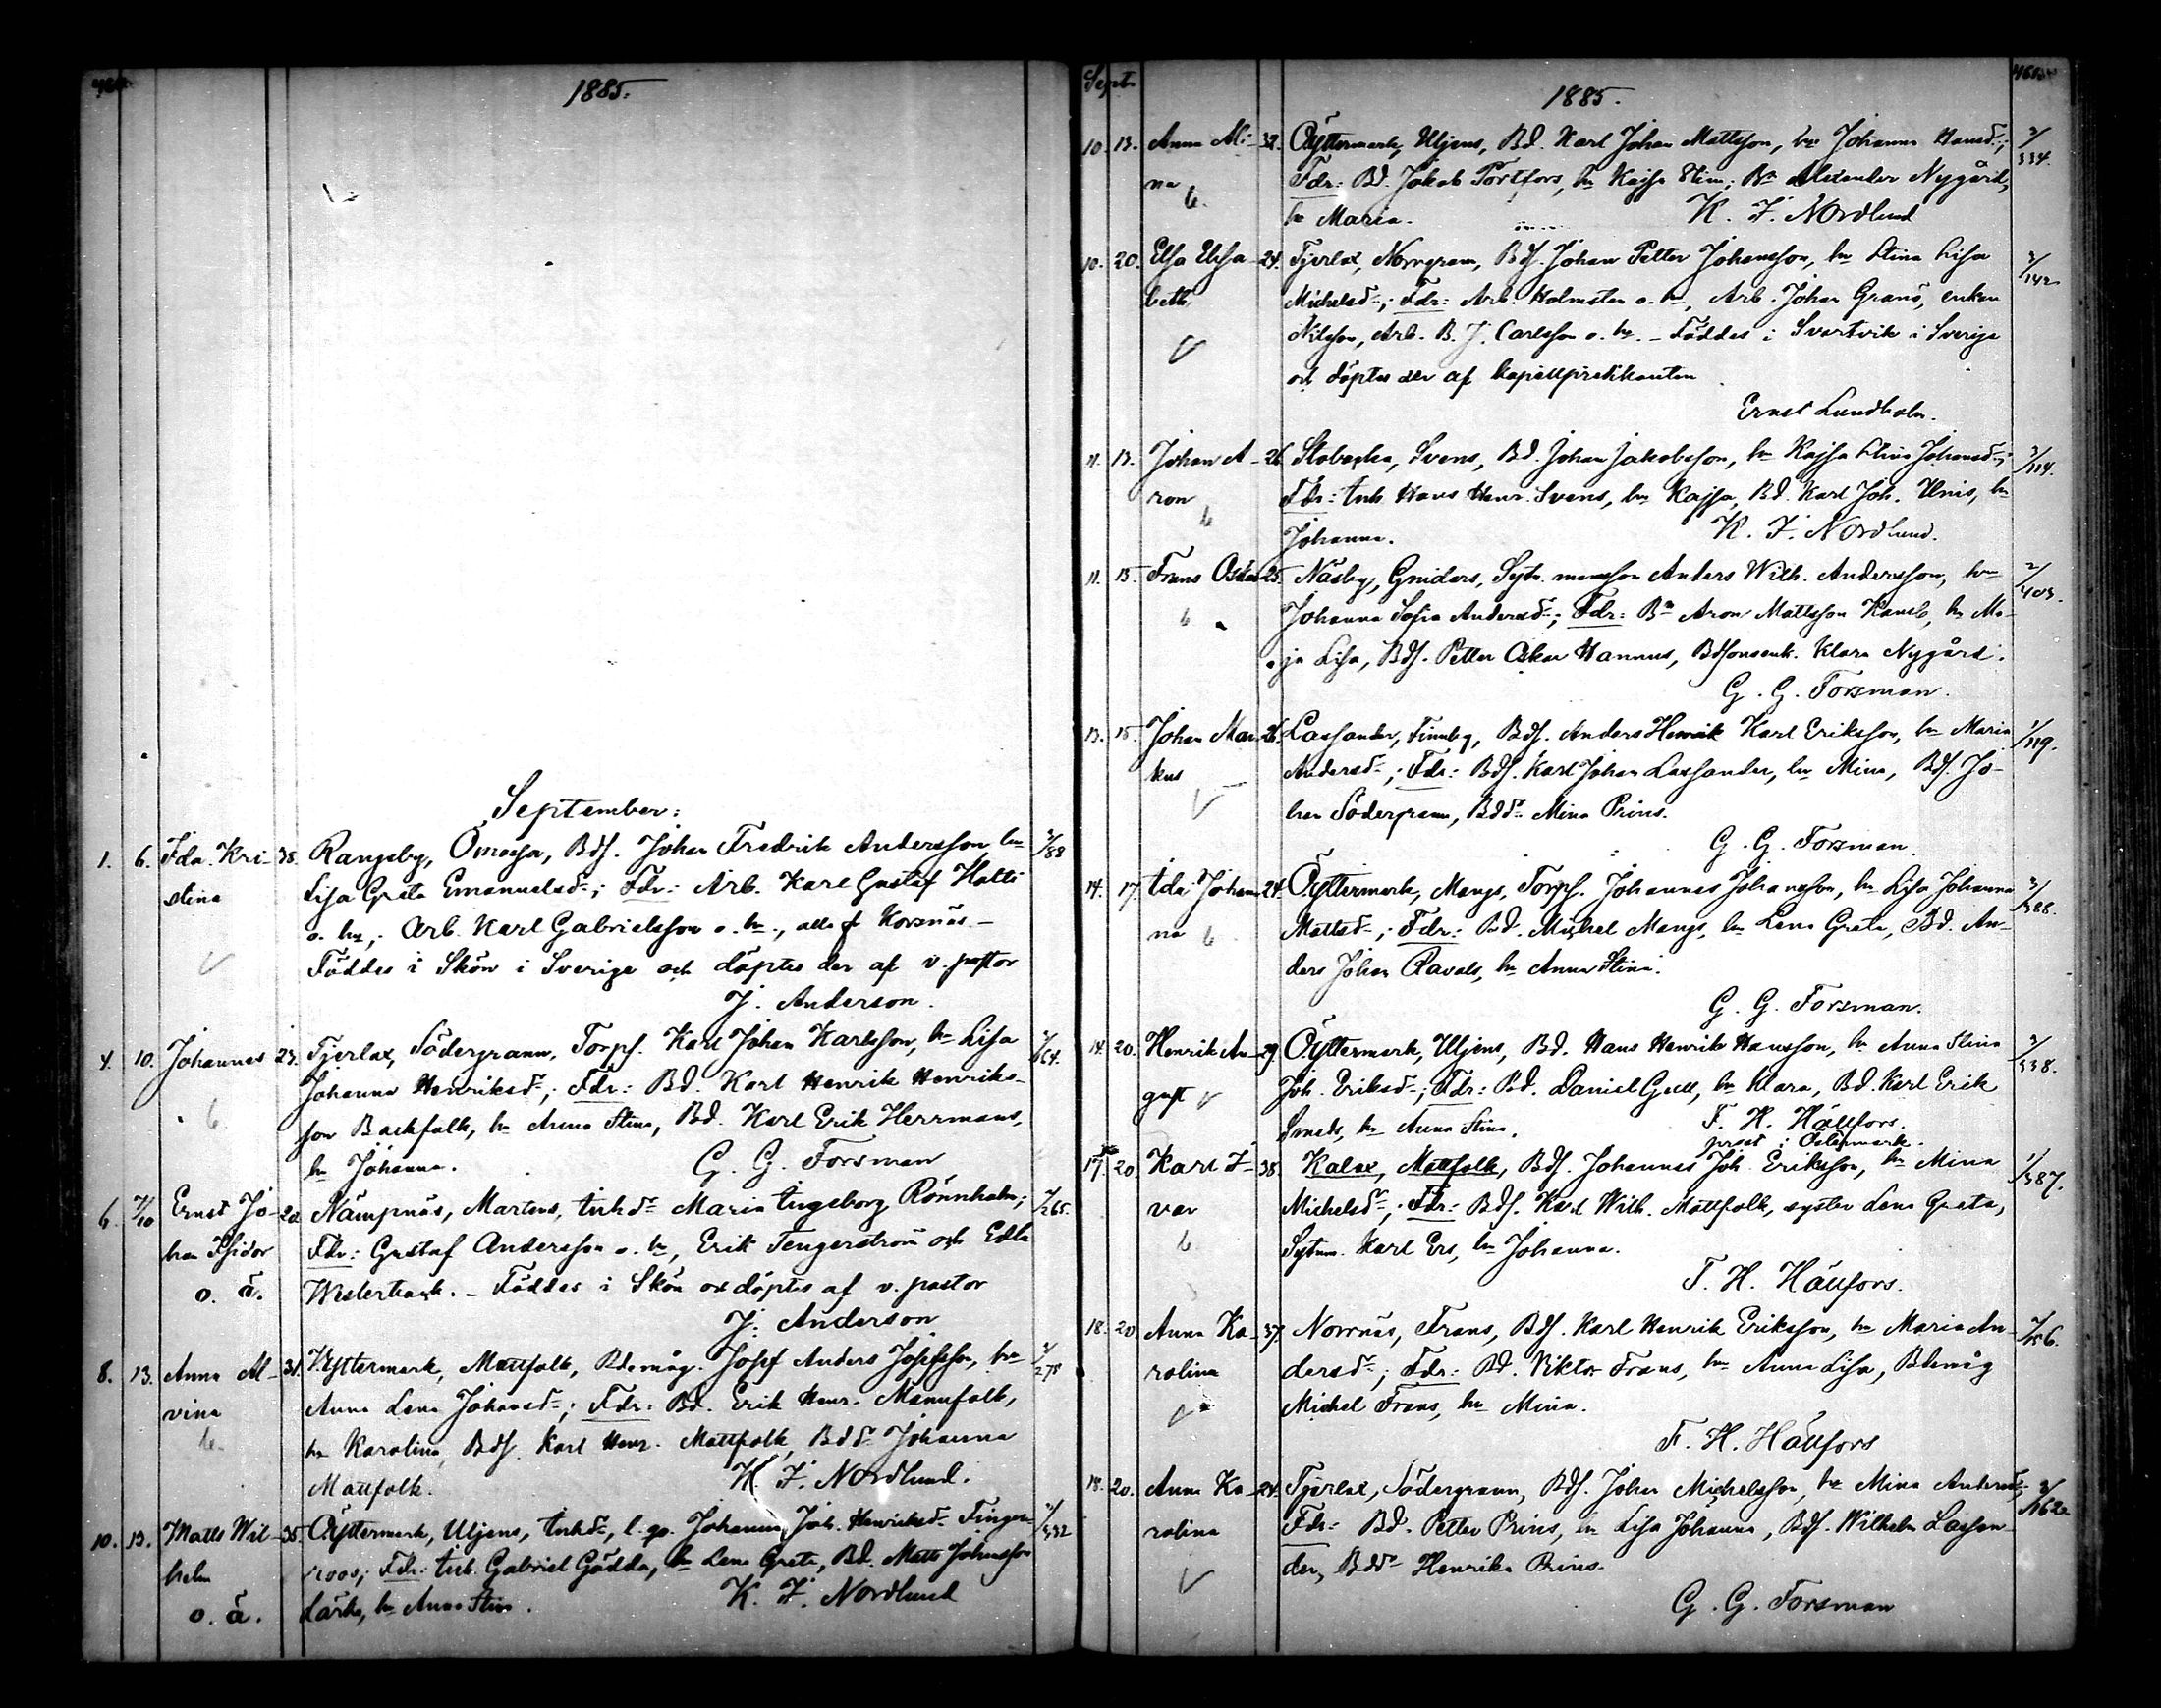 1885.
September:
1. 6. Ida Kri- 38. Rangsby, Ömossa, Bds. Johan Fredrik Andersson, hu
stina Lisa Greta Emanuelsdr; Fdr: Arb. Karl Gustaf Hatti
o. hu, Arb. Karl Gabrielsson o. hu., alla f Korsnäs -
Föddes i Skön i Sverige och döptes der af v. pastor
J. Anderson.
4. 10. Johannes 23. Tjerlax, Södergrann, Torps. Karl Johan Karlsson, hu Lisa
Johanna Henriksdr; Fdr: Bd. Karl Henrik Henriks-
son Backfalk, hu Anna Stina, Bd. Karl Erik Herrmans,
hu Johanna. G. G. Forsman
6. 7/10 Ernst Jo- 20 Nämpnäs, Martens, Inhdr Maria Ingeborg Rönnholm; 2/265.
han Isidor Fdr: Gustaf Andersson o. hu, Erik Tengerström och Edla
o. ä. Westerback. - Föddes i Skön och döptes af v. pastor
J. Anderson
8. 13. Anna Al- 31. Yttermark, Mattfolk, Bdemåg. Josef Anders Josefsson, hu
vina Anna Lena Johansdr; Fdr: Bd. Erik Henr. Mannfolk,
hu Karolina, Bds. Karl Henr. Mattfolk, Bddr Johanna
Mattfolk. K. F. Nordlund.
10. 13. Matts Wil- 35. Öyttermark, Uljens, Inhdr, l. qv. Johanna Joh. Henriksdr Finger- 3/332
helm roos; Fdr: Inh. Gabriel Gädda, hu Lena Greta, Bd. Matts Johansson
o. ä. Lärka, hu Anna Stina. K. F. Nordlund
Sept.
1885.
10. 13. Anna Mi- 32. Öyttermark, Uljens, Bd. Karl Johan Mattsson, hu Johanna Hansdr; 3/334.
na Fdr: Bd. Jakob Portfors, hu Kajsa Stina; Bn Alexander Nygård,
hu Maria. K. F. Nordlund
10. 20. Elsa Elisa- 24. Tjerlax, Norrgrann, Bds. Johan Petter Johansson, hu Stina Lisa 3/142
beth Michelsdr; Fdr: Arb. Holmsten o. hu, Arb. Johan Grans, enkan
Nilsson, Arb. B. J. Carlsson o. hu. - Föddes i Svartvik i Sverige
och döptes der af kapellpredikanten
Ernst Lundholm.
11. 13. Johan A- 26 Stobacka, Svens, Bd. Johan Jakobsson, hu Kajsa Stina Johansdr; 3/114.
ron Fdr: Inh Hans Henr. Svens, hu Kajsa, Bd. Karl Joh. Unis, hu
Johanna. K. F. Nordlund.
11. 15. Frans Oskar 25. Näsby, Gniders, Sytn. mansson Anders Wilh. Andersson, hu 2/403.
Johanna Sofia Andersdr; Fdr: Bn Aron Mattsson Kamb, hu Ma-
ja Lisa, Bds. Petter Oskar Hannus, Bdsonenk. Klara Nygård.
G. G. Forsman.
13. 15. Johan Mar- 26. Lassander, Finnby, Bds. Anders Henrik Karl Eriksson, hu Maria 1/119.
kus Andersdr; Fdr: Bds. Karl Johan Lassander, hu Mina, Bds. Jo-
han Södergrann, Bddr Mina Prins.
G. G. Forsman.
14. 17. Ida Johan- 24. Öyttermark, Mangs, Torps. Johannes Johansson, hu Lisa Johanna 3/388.
na Mattsdr; Fdr: Bd. Michel Mangs, hu Lena Greta, Bd. An-
ders Johan Ravals, hu Anna Stina.
G. G. Forsman.
14. 20. Henrik Au- 29. Öyttermark, Uljens, Bd. Hans Henrik Hansson, hu Anna Stina 3/338.
gust Joh. Eriksdr; Fdr: Bd. Daniel Gull, hu Klara, Bd. Karl Erik
Smeds, hu Anna Stina. F. H. Hällfors.
prest i Östermark.
17. 20. Karl I- 38. Kalax, Mattfolk, Bds. Johannes Joh. Eriksson, hu Mina 1/387.
var Michelsdr; Fdr: Bds. Karl Wilh. Mattfolk, syster Lena Greta,
Sytnm. Karl Ers, hu Johanna.
F. H. Hällfors.
18. 20. Anna Ka- 37. Norrnäs, Frans, Bds. Karl Henrik Eriksson, hu Maria An-
rolina dersdr; Fdr: Bd. Viktor Frans, hu Anna Lisa, Bdemåg
Michel Frans, hu Mina.
F. H. Hällfors
18. 20. Anna Ka- 24. Tjerlax, Södergrann, Bds. Johan Michelsson, hu Mina Andersdr; 3/162
rolina Fdr: Bd. Petter Prins, hu Lisa Johanna, Bds. Wilhelm Lassan-
der, Bddr Henrika Prins.
G. G. Forsman